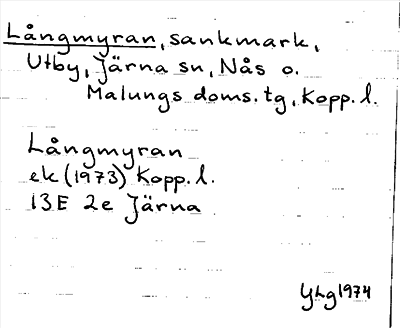 Långmyran, sankmark,
Utby, Järna sn, Nås o.
Malungs doms. tg, Kopp. l.
Långmyran
ek (1973) Kopp. l.
13E 2e Järna
YLg 1974